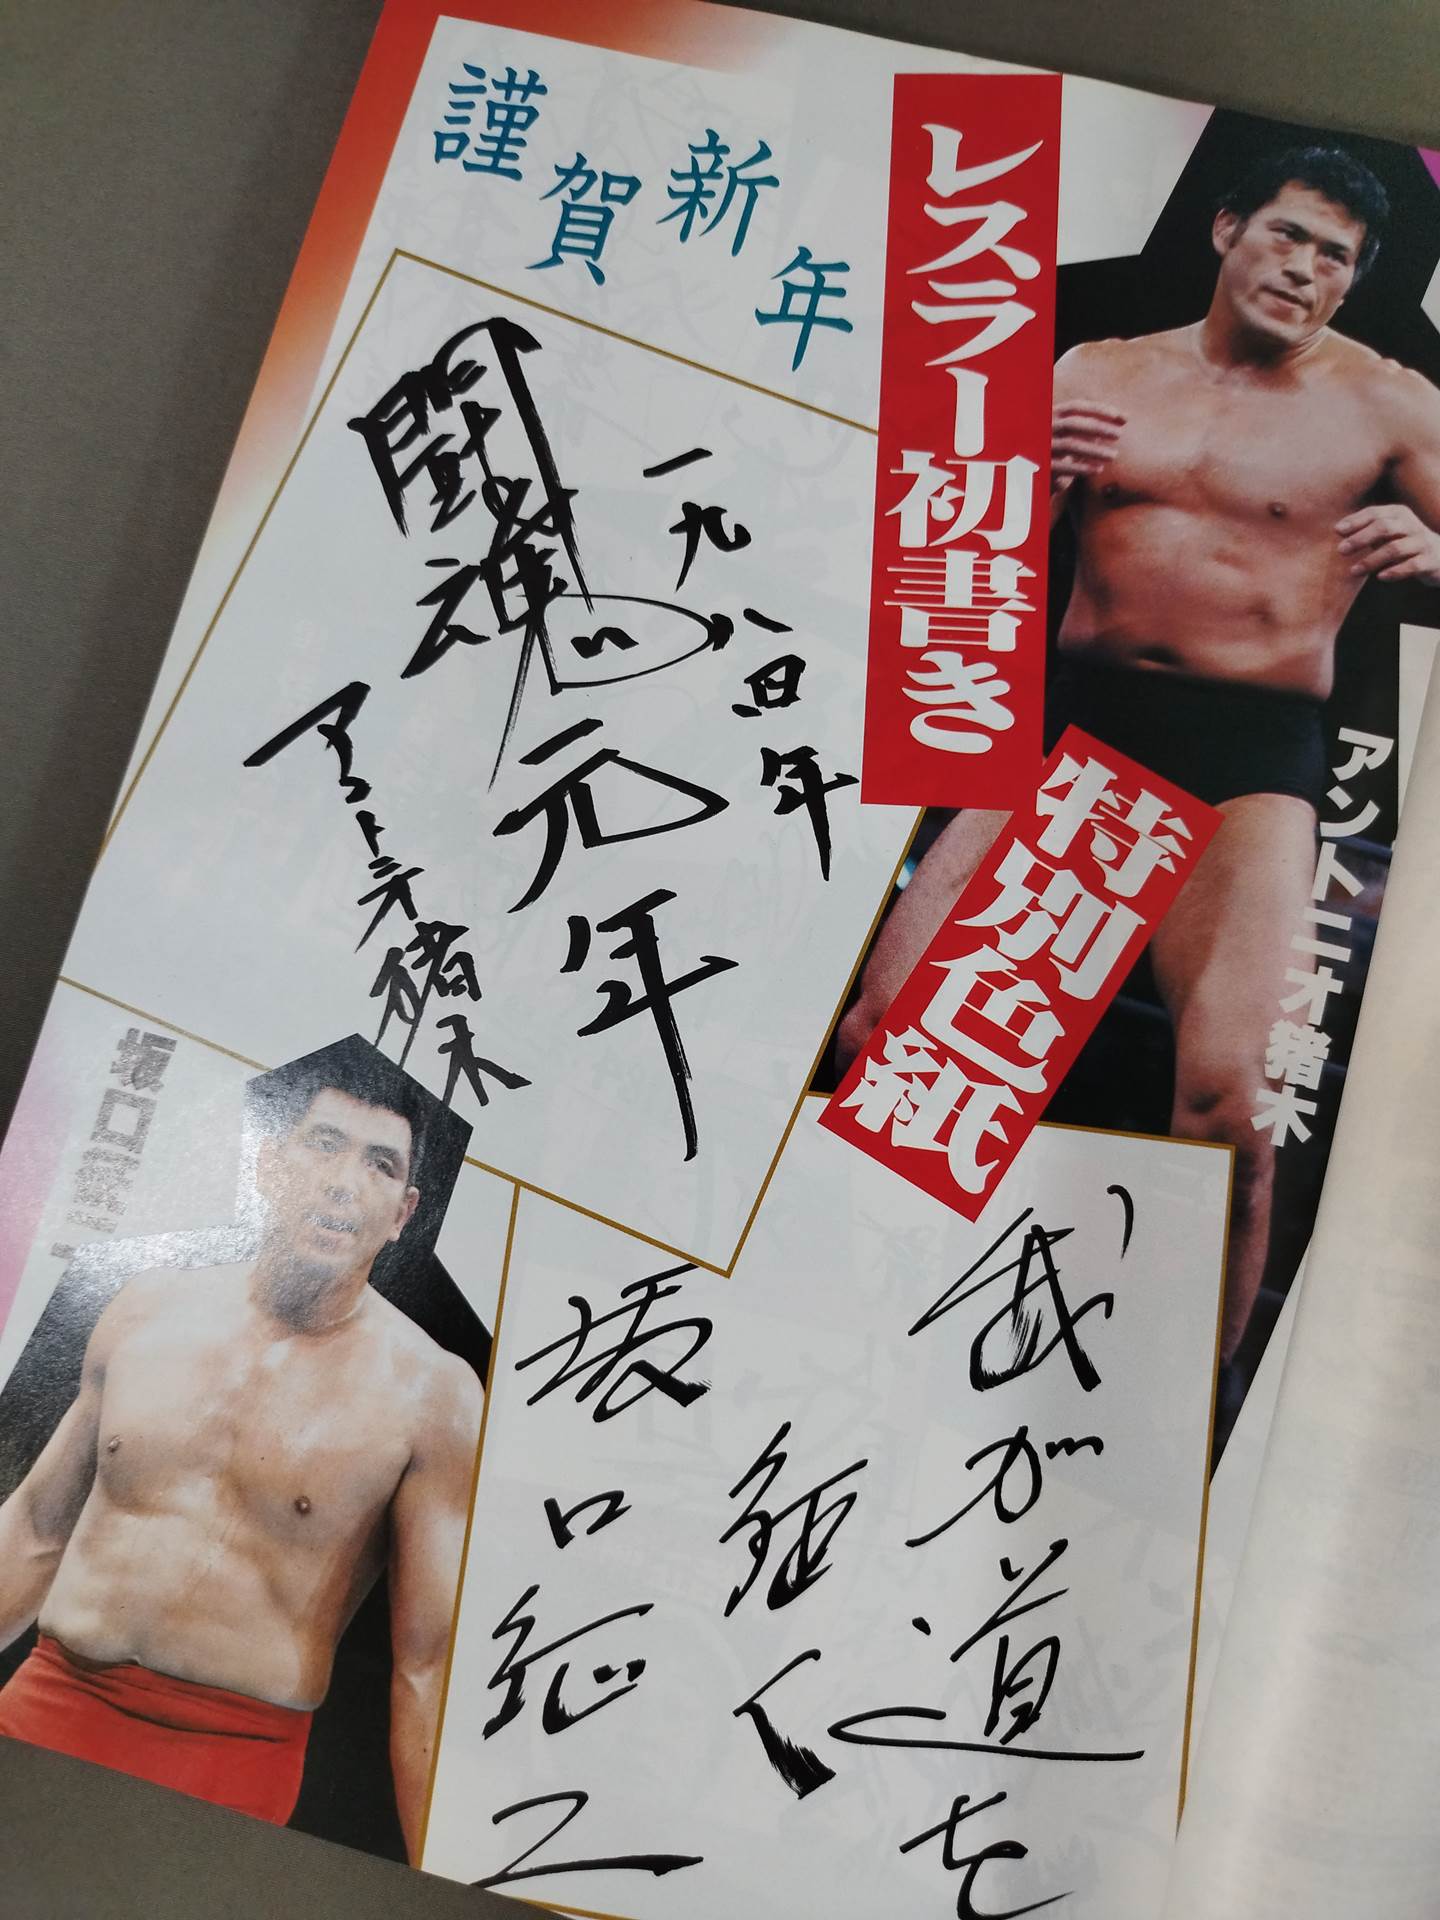 謹賀新年
レスラー初書き
特別色紙
アントニオ猪木
一九八〇年
闘魂元年
アントニオ猪木
坂口征二
我が道を
征く
坂口征二